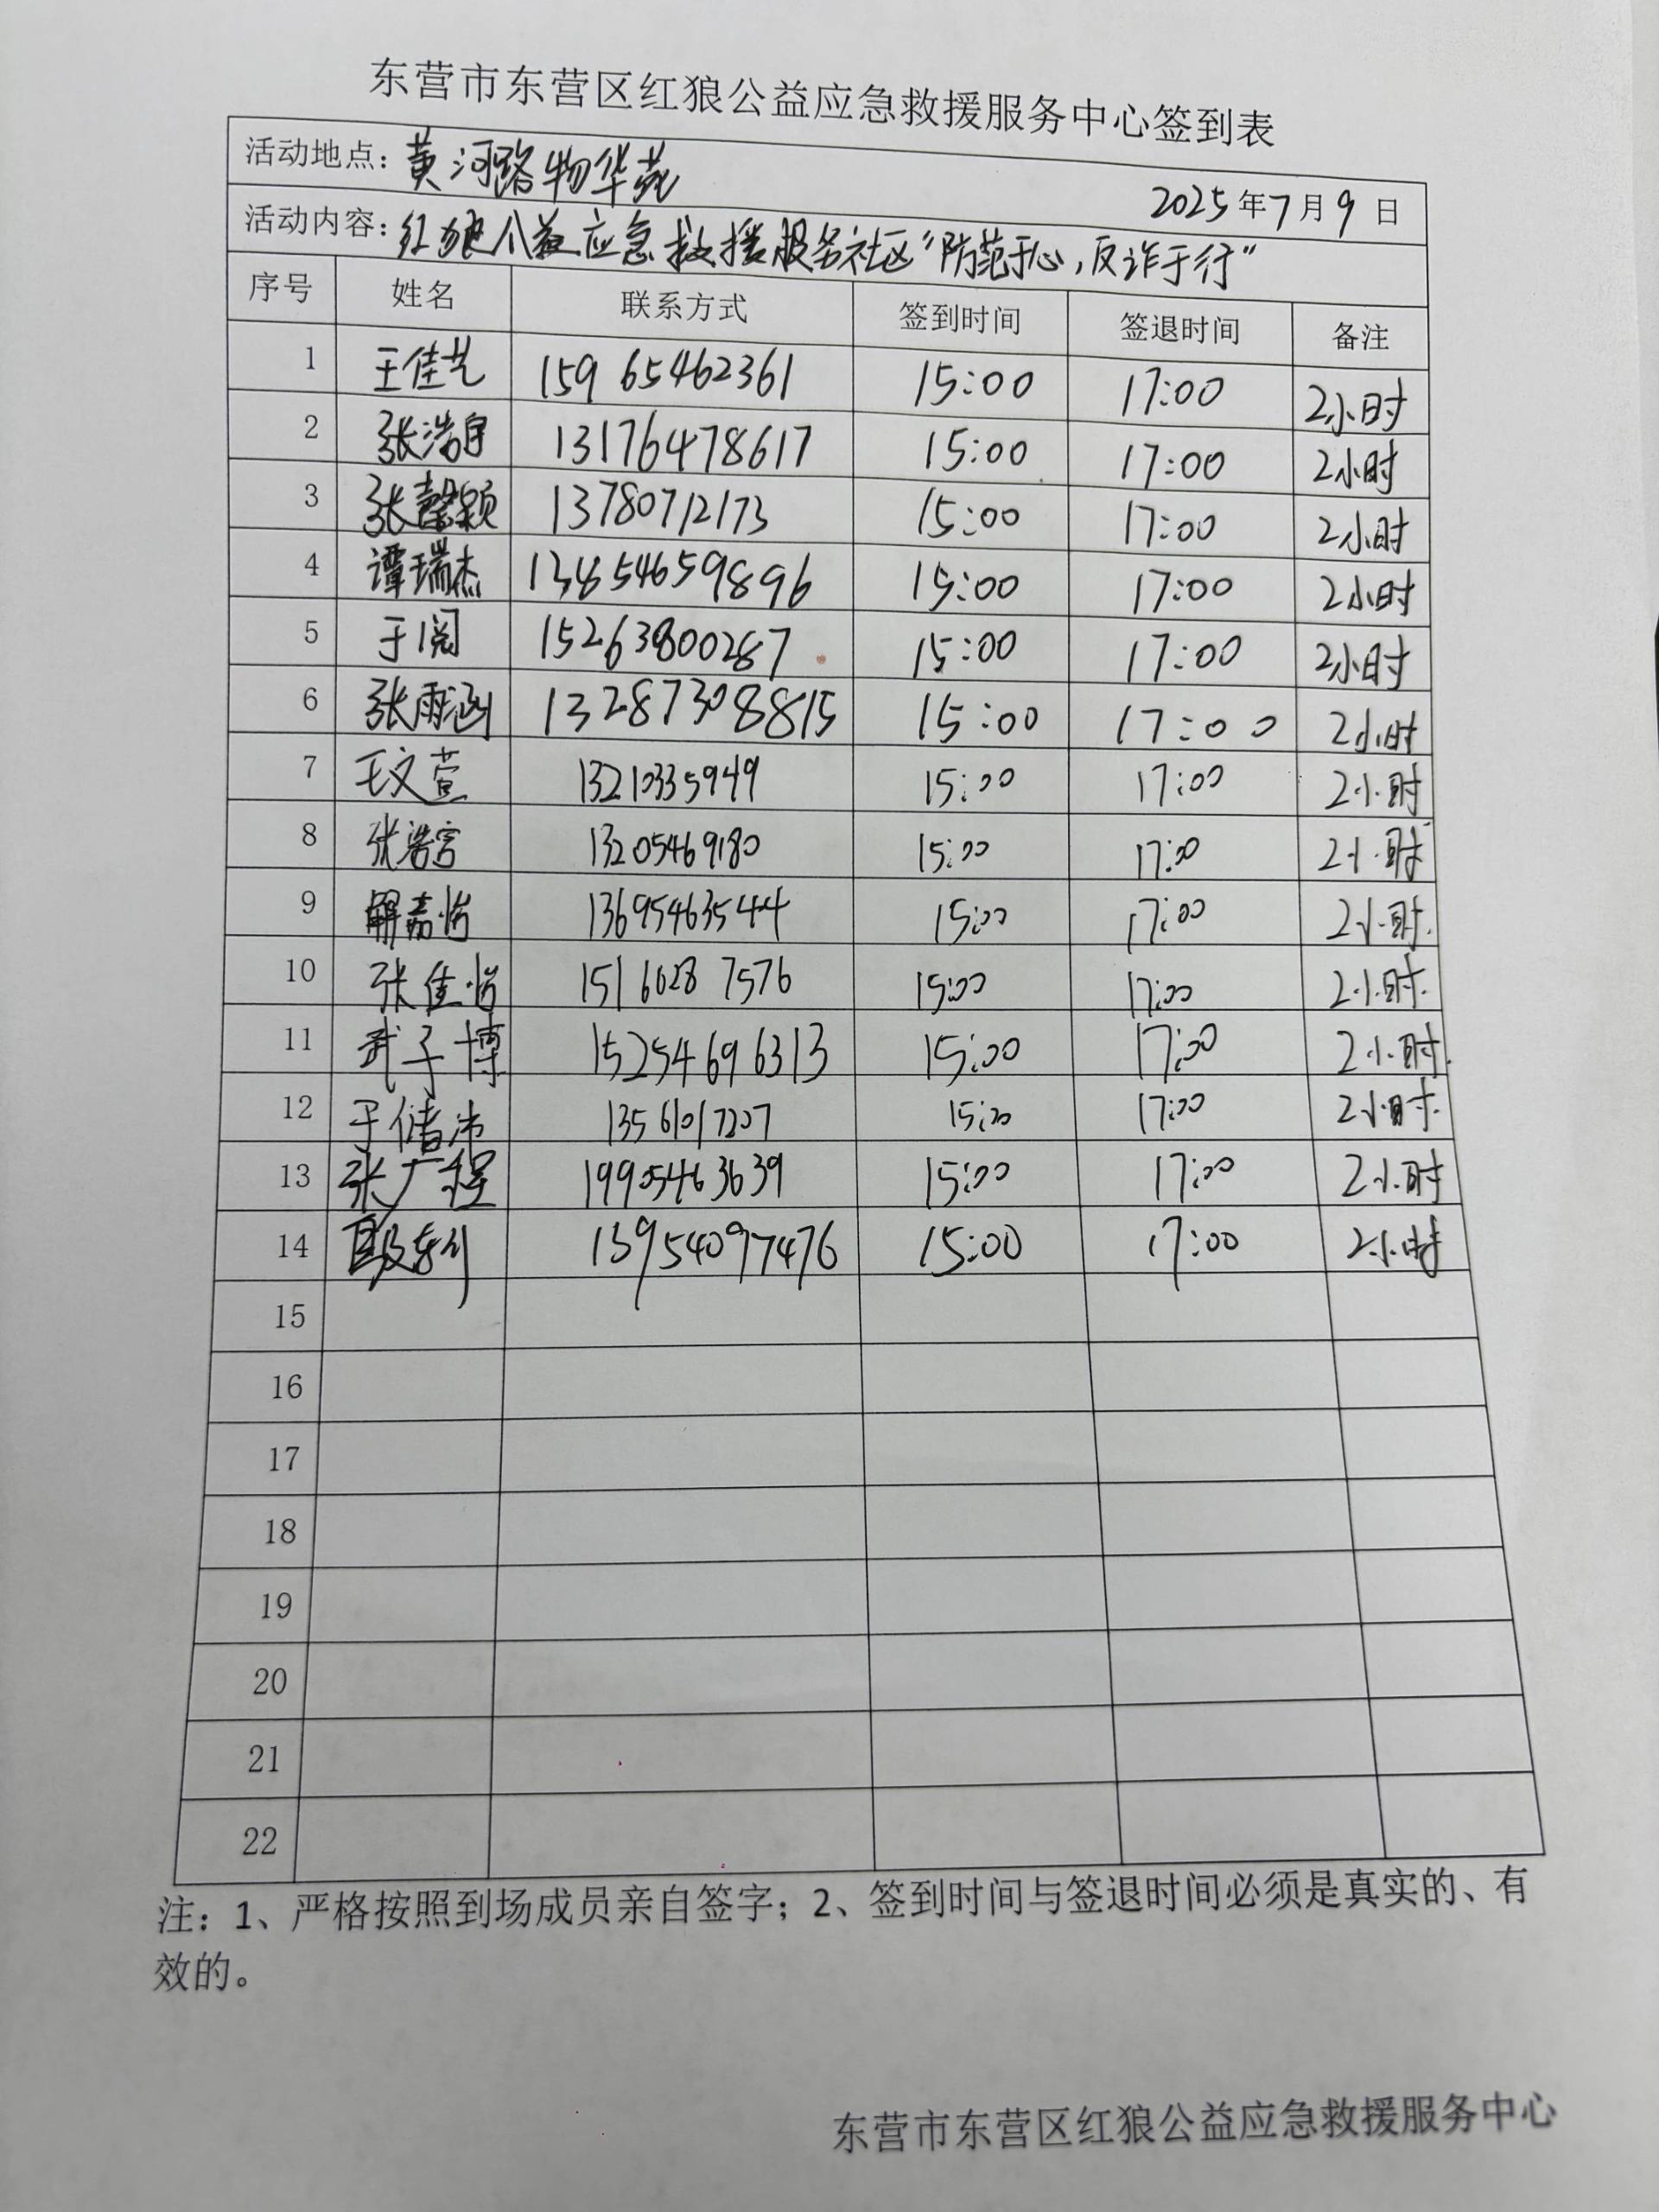 东营市东营区红狼公益应急救援服务中心签到表
活动地点：黄河路物华苑 2025年7月9日
活动内容：红狼公益应急救援服务社区“防范于心，反诈于行”
序号 姓名 联系方式 签到时间 签退时间 备注
1 王佳艺 15965462361 15:00 17:00 2小时
2 张浩宇 13176478617 15:00 17:00 2小时
3 张馨颖 13780712173 15:00 17:00 2小时
4 谭瑞杰 13854659896 15:00 17:00 2小时
5 于阅 15263800287 15:00 17:00 2小时
6 张雨涵 13287308815 15:00 17:00 2小时
7 王文萱 13210335949 15:00 17:00 2小时
8 张浩宫 13205469180 15:00 17:00 2小时
9 解嘉怡 13695463544 15:00 17:00 2小时.
10 张佳怡 15166287576 15:00 17:00 2小时.
11 武子博 15254696313 15:00 17:00 2小时.
12 于 13561017207 15:00 17:00 2小时.
13 张广程 19905463639 15:00 17:00 2小时
14 13954097476 15:00 17:00 2小时
15
16
17
18
19
20
21
22
注：1、严格按照到场成员亲自签字；2、签到时间与签退时间必须是真实的、有
效的。
东营市东营区红狼公益应急救援服务中心